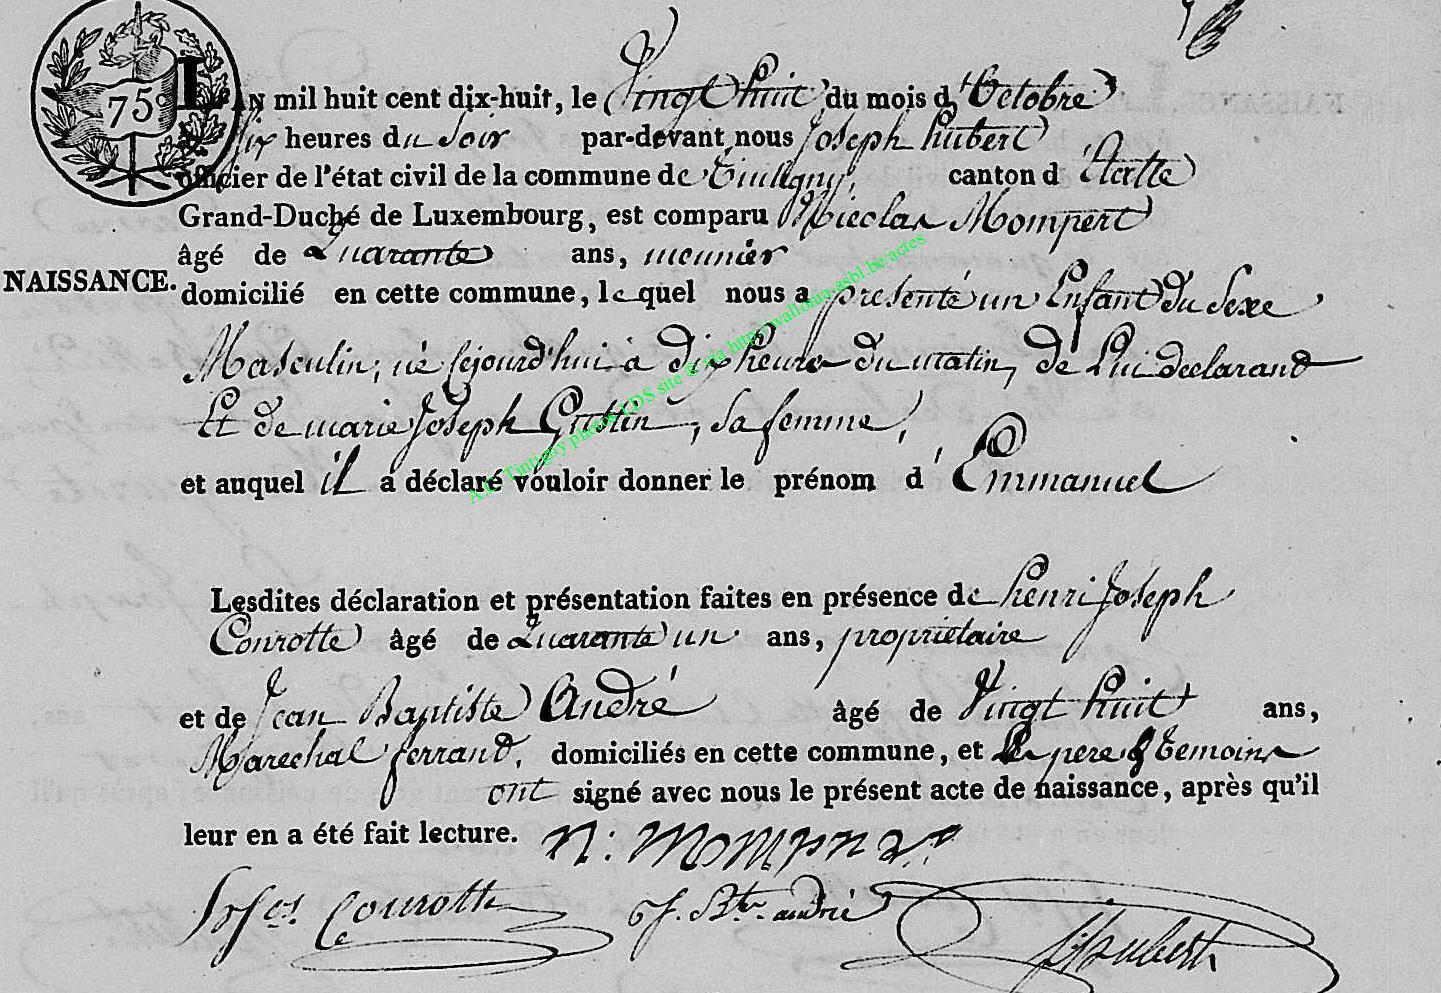 75c
L'AN mil huit cent dix-huit, le Vingt huit du mois d'Octobre
à Six heures du Soir par-devant nous Joseph hubert
officier de l'état civil de la commune de Tintigny, canton d'Etalle
Grand-Duché de Luxembourg, est comparu Nicolas Mompert
âgé de Quarante ans, meunier
NAISSANCE. domicilié en cette commune, lequel nous a presenté un Enfant du Sexe
Masculin, né Cejourd'hui à dix heures du matin, de Lui declarand
Et de marie Joseph Gustin, Sa femme,
et auquel il a déclaré vouloir donner le prénom d'Emmanuel
Lesdites déclaration et présentation faites en présence de henri Joseph
Conrotte âgé de Quarante un ans, propriétaire
et de Jean Baptiste André âgé de Vingt huit ans,
Marechal ferrand, domiciliés en cette commune, et Le pere & temoins
ont signé avec nous le présent acte de naissance, après qu'il
leur en a été fait lecture. N: Mompert
Conrotte J. Bte. andré hubert
A.E. Tintigny photos LDS site & via http://wallonia-asbl.be/actes